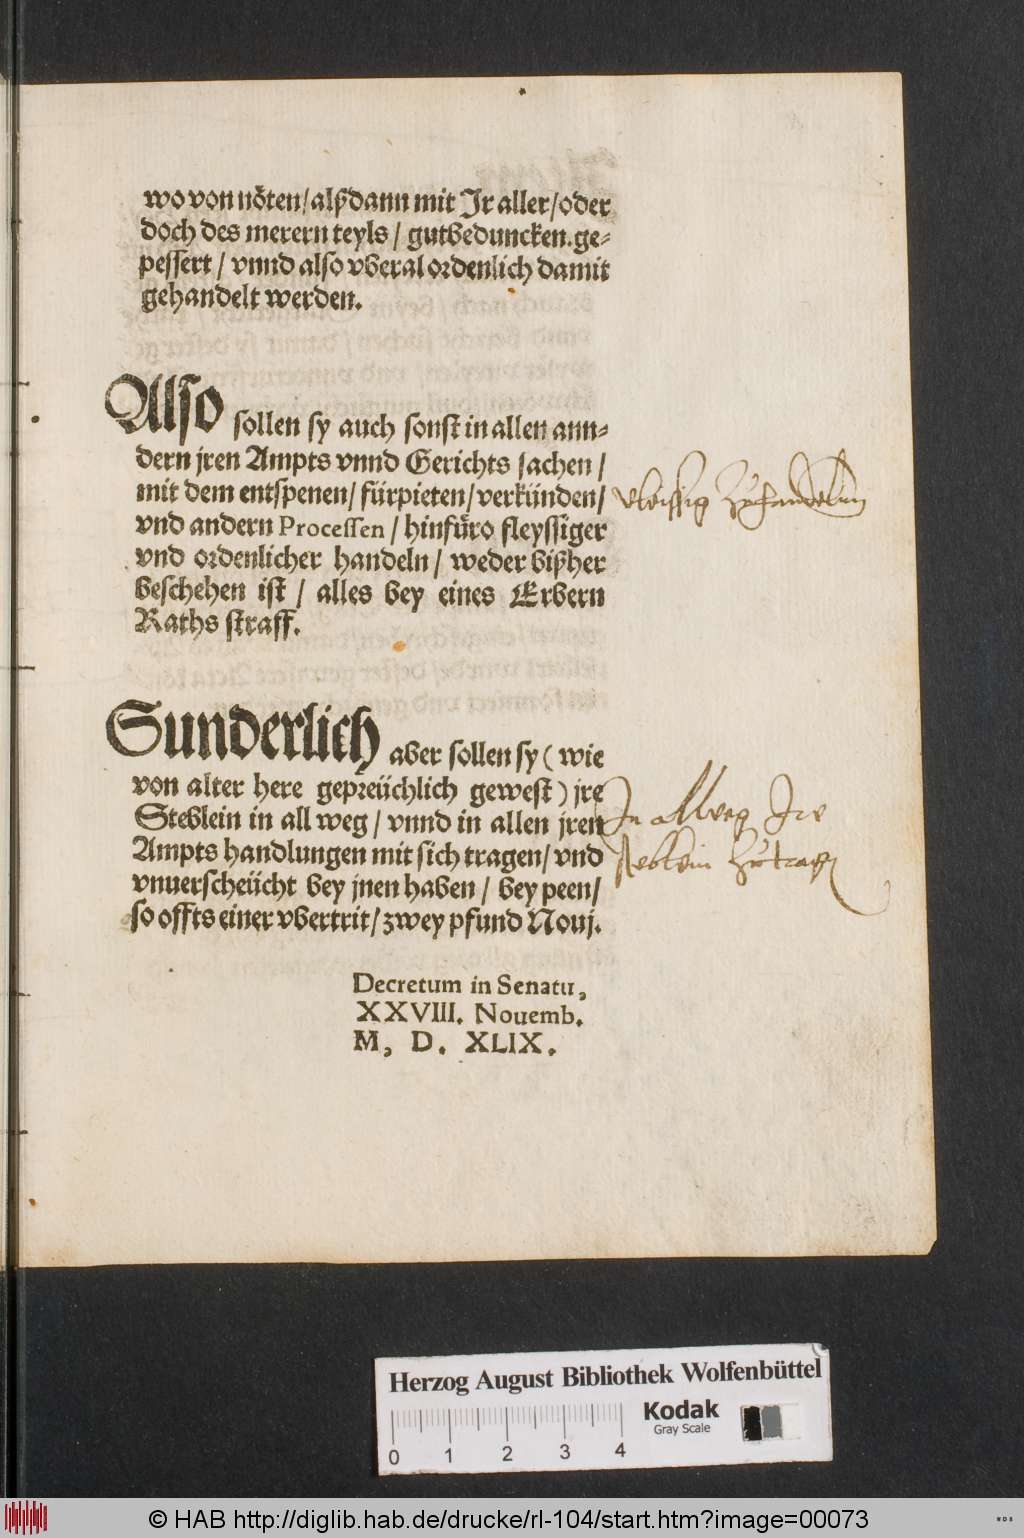 wo von nöten / alßdann mit Jr aller / oder
doch des merern teyls / gutbeduncken. ge-
pessert / vnnd also vberal ordenlich damit
gehandelt werden.
Also sollen sy auch sonst in allen ann-
dern jren Ampts vnnd Gerichts sachen /
mit dem entspenen / fürpieten / verkünden /
vnd andern Processen / hinfüro fleyssiger
vnd ordenlicher handeln / weder bißher
beschehen ist / alles bey eines Erbern
Raths straff.
vleissig Zuhandeln
Sunderlich aber sollen sy ( wie
von alter here gepreüchlich gewest ) jre
Steblein in all weg / vnnd in allen jren
Ampts handlungen mit sich tragen / vnd
vnuerscheücht bey jnen haben / bey peen /
so offts einer vbertrit / zwey pfund Nouj.
In Allweg Ire
steblein Zutragen
Decretum in Senatu,
XXVIII. Nouemb.
M, D. XLIX.
Herzog August Bibliothek Wolfenbüttel
0 1 2 3 4
Kodak
Gray Scale
© HAB http://diglib.hab.de/drucke/rl-104/start.htm?image=00073